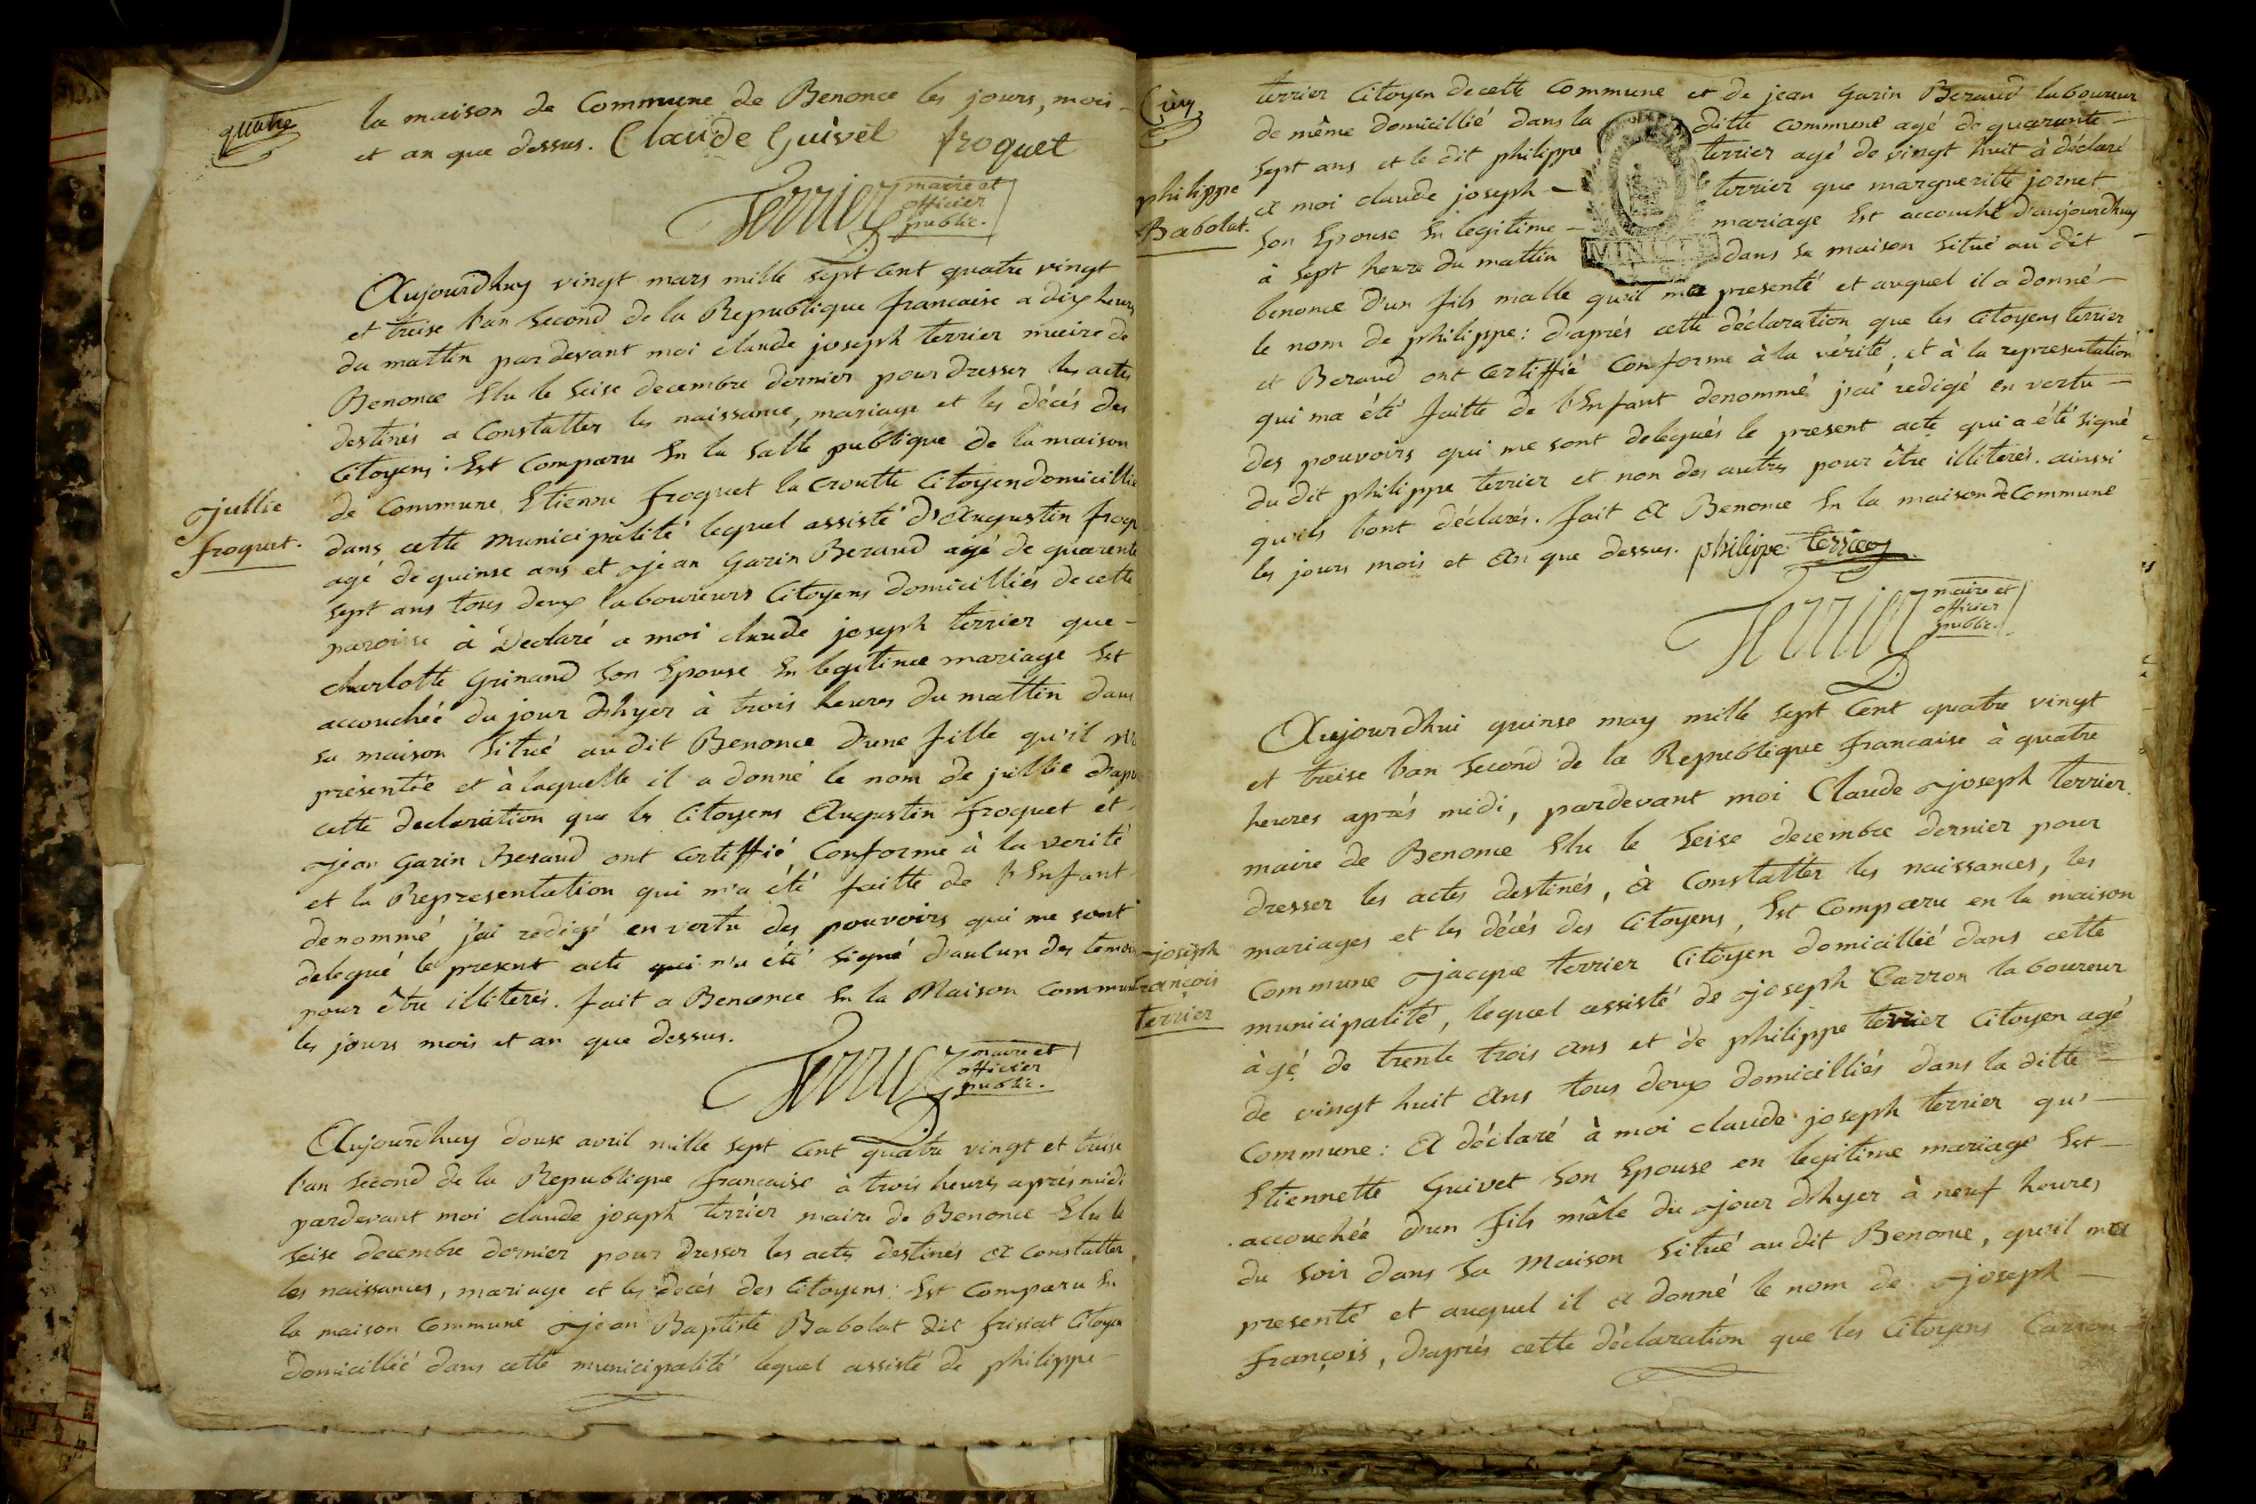 quatre
la maison de Commune de Benonce les jours, mois
et an que dessus. Claude Guivel froquet
Terrier maire et
officier
public.
Aujourdhuy vingt mars mille sept cent quatre vingt
et treise l'an second de la Republique francaise a dix heures
du mattin pardevant moi claude joseph terrier maire de
Benonce Elu le seise decembre dernier pour dresser les actes
destinés a Constatter les naissance, mariage et les décés des
Citoyens: Est Comparu En la salle publique de la maison
de Commune Etienne froquet la croutte Citoyen domicillié
jullie
froquet.
dans cette municipalité lequel assisté d'Augustin froq
agé de quinse ans et jean Garin Beraud agé de quarente
sept ans tous deux laboureurs Citoyens domicilliés de cette
paroisse à Declaré a moi claude joseph terrier que
charlotte Grinand son Epouse En legitime mariage Est
accouchée du jour d'hyer à trois heures du mattin dans
sa maison situé audit Benonce d'une fille qu'il m'a
présentée et à laquelle il a donné le nom de jullie d'apr
cette declaration que les Citoyens Augustin froquet et
jean Garin Beraud ont certiffié Conforme à la verité
et la Representation qui m'a été faitte de l'Enfant
denommé j'ai redigé en vertu des pouvoirs qui me sont
delegué le present acte qui n'a été signé d'aucun des temoin
pour être illiterés. fait a Benonce En la Maison Commune
les jours mois et an que dessus.
Terrier maire et
officier
public.
Aujourdhuy douse avril mille sept cent quatre vingt et treise
l'an second de la Republique francaise à trois heures après midi
pardevant moi claude joseph terrier maire de Benonce Elu le
seise decembre dernier pour dresser les actes destinés a Constatter
les naissances, mariage et les décés des Citoyens: Est Comparu En
la maison Commune jean Baptiste Babolat dit frisiat Citoyen
domicillié dans cette municipalité lequel assisté de philippe
Cinq
terrier Citoyen de cette Commune et de jean Garin Beraud laboureur
de même domicillié dans la ditte commune agé de quarante
sept ans et le dit philippe terrier agé de vingt huit à déclaré
philippe
Babolat.
a moi claude joseph terrier que margueritte jornet
son Epouse En legitime mariage Est accouché d'aujourdhuy
à sept heure du mattin dans sa maison situé au dit
MINUTE
benonce d'un fils malle qu'il m'a presenté et auquel il a donné
le nom de philippe: d'aprés cette déclaration que les Citoyens terrier
et Beraud ont certiffié Conforme à la vérité. et à la representation
qui ma été faitte de l'Enfant denommé j'ai redigé en vertu
des pouvoirs qui me sont delegués le present acte qui a été signé
du dit philippe terrier et non des autres pour être illiterés. ainssi
qu'ils l'ont déclarés. fait a Benonce En la maison de Commune
les jours mois et an que dessus. philippe terrier
Terrier maire et
officier
public.
Aujourdhui quinse may mille sept cent quatre vingt
et treise l'an second de la Republique francaise à quatre
heures aprés midi, pardevant moi Claude joseph terrier
maire de Benonce Elu le seise decembre dernier pour
dresser les actes destinés, à Constatter les naissances, les
mariages et les décés des Citoyens, Est Comparu en la maison
joseph
françois
terrier
Commune jacque terrier Citoyen domicillié dans cette
municipalité, lequel assisté de joseph Carron laboureur
àgé de trente trois ans et de philippe terrier Citoyen agé
de vingt huit ans tous deux domicilliés dans la ditte
Commune: A déclaré à moi claude joseph terrier qu'
Etiennette Guivet son Epouse en legitime mariage Est
accouchée d'un fils mâle du jour d'hyer à neuf heures
du soir dans sa Maison situé au dit Benonce, qu'il m'a
presenté et auquel il a donné le nom de joseph
françois, d'aprés cette déclaration que les Citoyens Carron